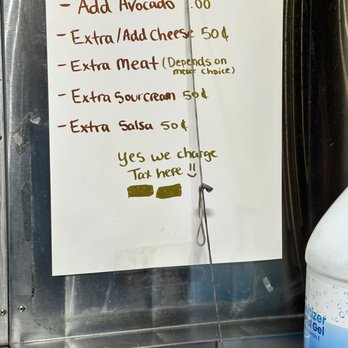 - Add Avocado .00
- Extra/Add Cheese 50¢
- Extra Meat (Depends on
meat choice)
- Extra Sourcream 50¢
- Extra Salsa 50¢
Yes we charge
Tax here
Gel